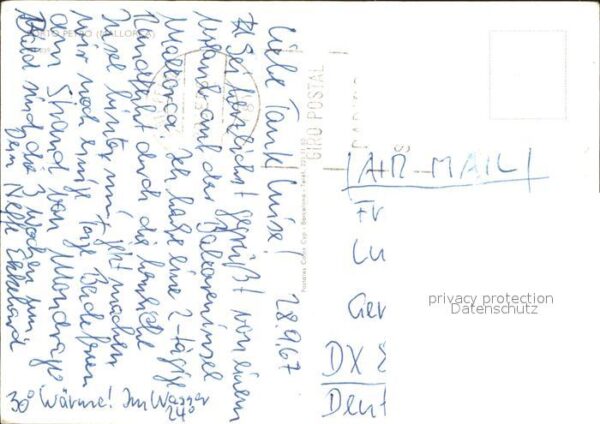 PORTO PETRO (MALLORCA)
Liebe Tante Luise! 28.9.67
Sei herzlichst gegrüßt von einem
Urlaub auf der Baleareninsel
Mallorca. Ich habe eine 2-tägige
Rundfahrt durch die herrliche
Insel hinter mir, jetzt machen
wir noch einige Tage Badeferien
am Strand von Mondrago
Bald sind die 3 Wochen um
Dein Neffe Ekkehard
30° Wärme! Im Wasser
24°
GIRO POSTAL
AIR-MAIL
Fr
Lu
Ger
DX
Deut
privacy protection
Datenschutz